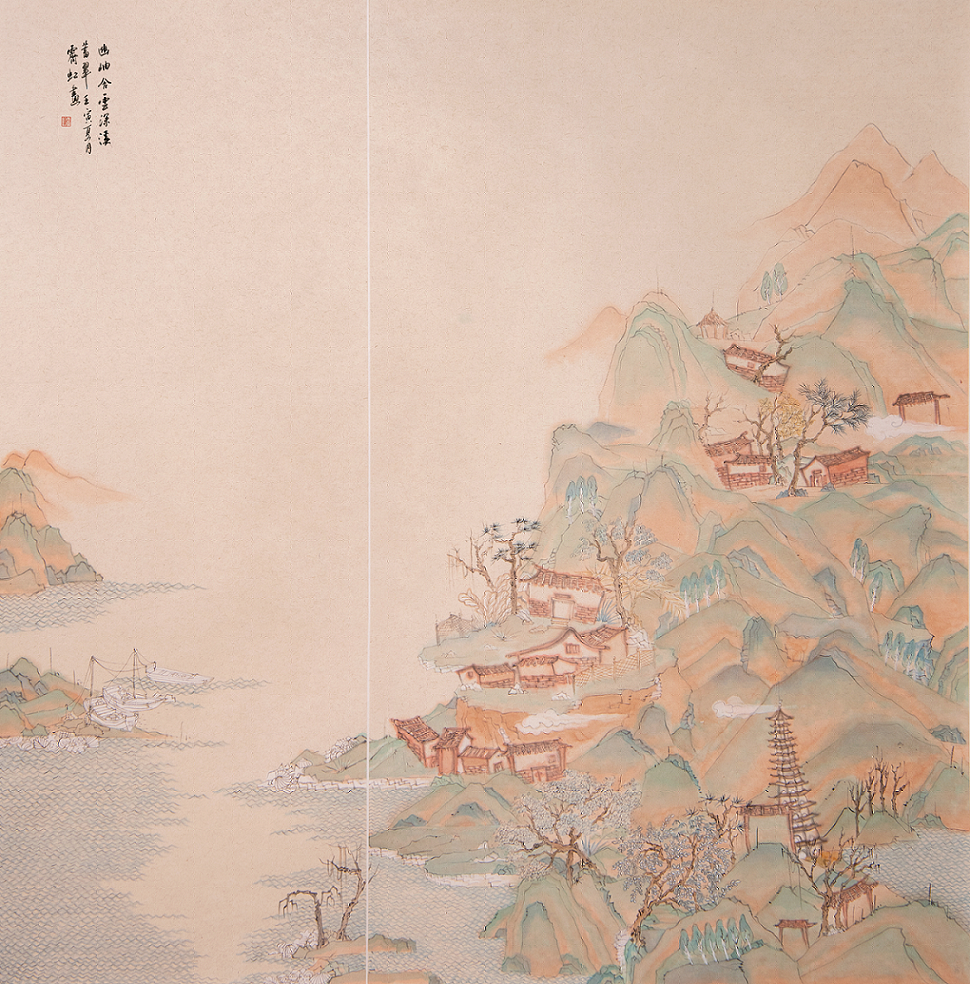 幽岫含雲深溪
蓄翠 壬寅夏月
霽虹畫